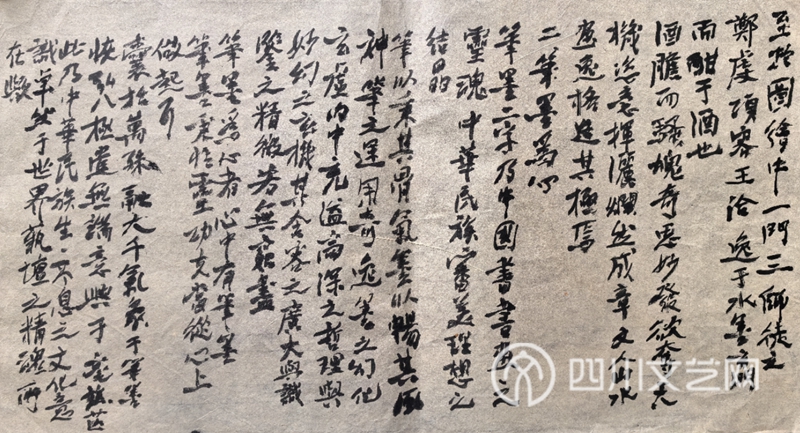 至於圖繪中一門三師徒之
鄭虔項容王洽逸于水墨
而酣于酒也
酒膽而騷魄奇思妙發欲奮大
機恣意揮灑斕然成章文 水
畫逸格造其極焉
二筆墨爲心
筆墨二字乃中國書畫之
靈魂中華民族審美理想之
結晶
筆以束其骨氣墨以暢其風
神筆之運用奇逸墨之幻化
玄虛内中充溢高深之哲理與
妙幻之玄機其含蓄之廣大與識
鑒之精微若無窮盡
筆墨爲心者心中有筆墨
筆墨秉於靈功夫當從心上
做起可
囊括萬殊融大千氣象于筆墨
快弘八極虛無諸意興于毫
此乃中華民族生生不息之文化意
識卓然于世界藝壇之精魂所
在歟
四川文艺网